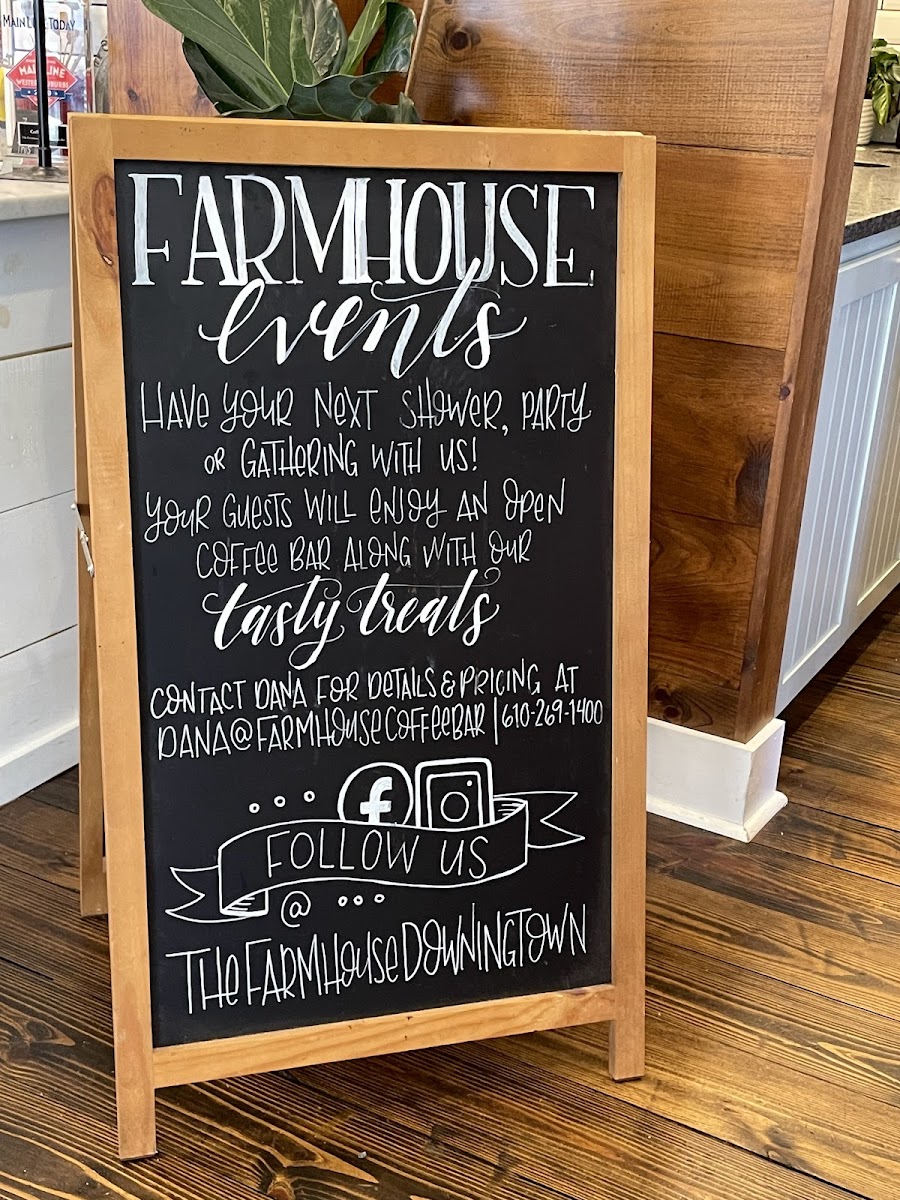 Main Line Today
FARMHOUSE
events
HAVE YOUR NEXT SHOWER, PARTY
OR GATHERING WITH US!
YOUR GUESTS WILL ENJOY AN OPEN
COFFEE BAR ALONG WITH OUR
tasty treats
CONTACT DANA FOR DETAILS & PRICING AT
DANA@FARMHOUSECOFFEEBAR | 610-269-1400
f
FOLLOW US
@
THEFARMHOUSEDOWNINGTOWN